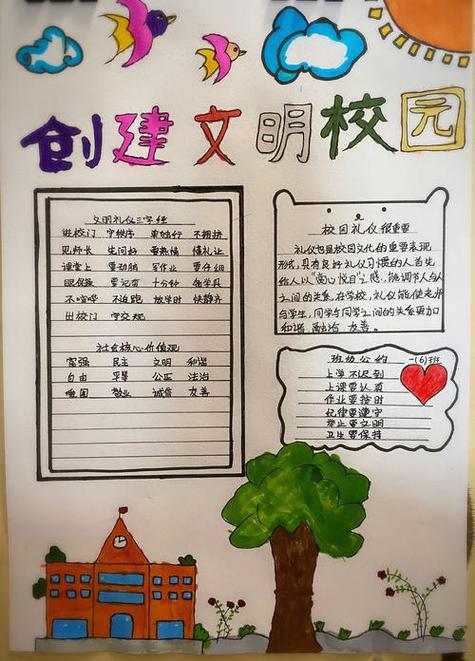 创建文明校园
文明礼仪三字经
进校门 守秩序 靠右行 不拥挤
见师长 先问好 要热情 懂礼让
课堂上 要动脑 写作业 要仔细
眼保操 要记穴 十分钟
不喧哗 不追跑 放学时 快静齐
出校门 守交规
社会核心价值观
富强 民主 文明 和谐
自由 平等 公正 法治
爱国 敬业 诚信 友善
校园礼仪很重要
礼仪也是校园文化的重要表现
形式,具有良好礼仪习惯的人首先
给人以“赏心悦目”之感,能调节人与人
之间的关系,在学校,礼仪能使老师
与学生,同学与同学之间的关系更加
和谐 融洽 友善。
班级公约 一(6)班
上学不迟到
上课要认真
作业要按时
纪律要遵守
举止要文明
卫生要保持